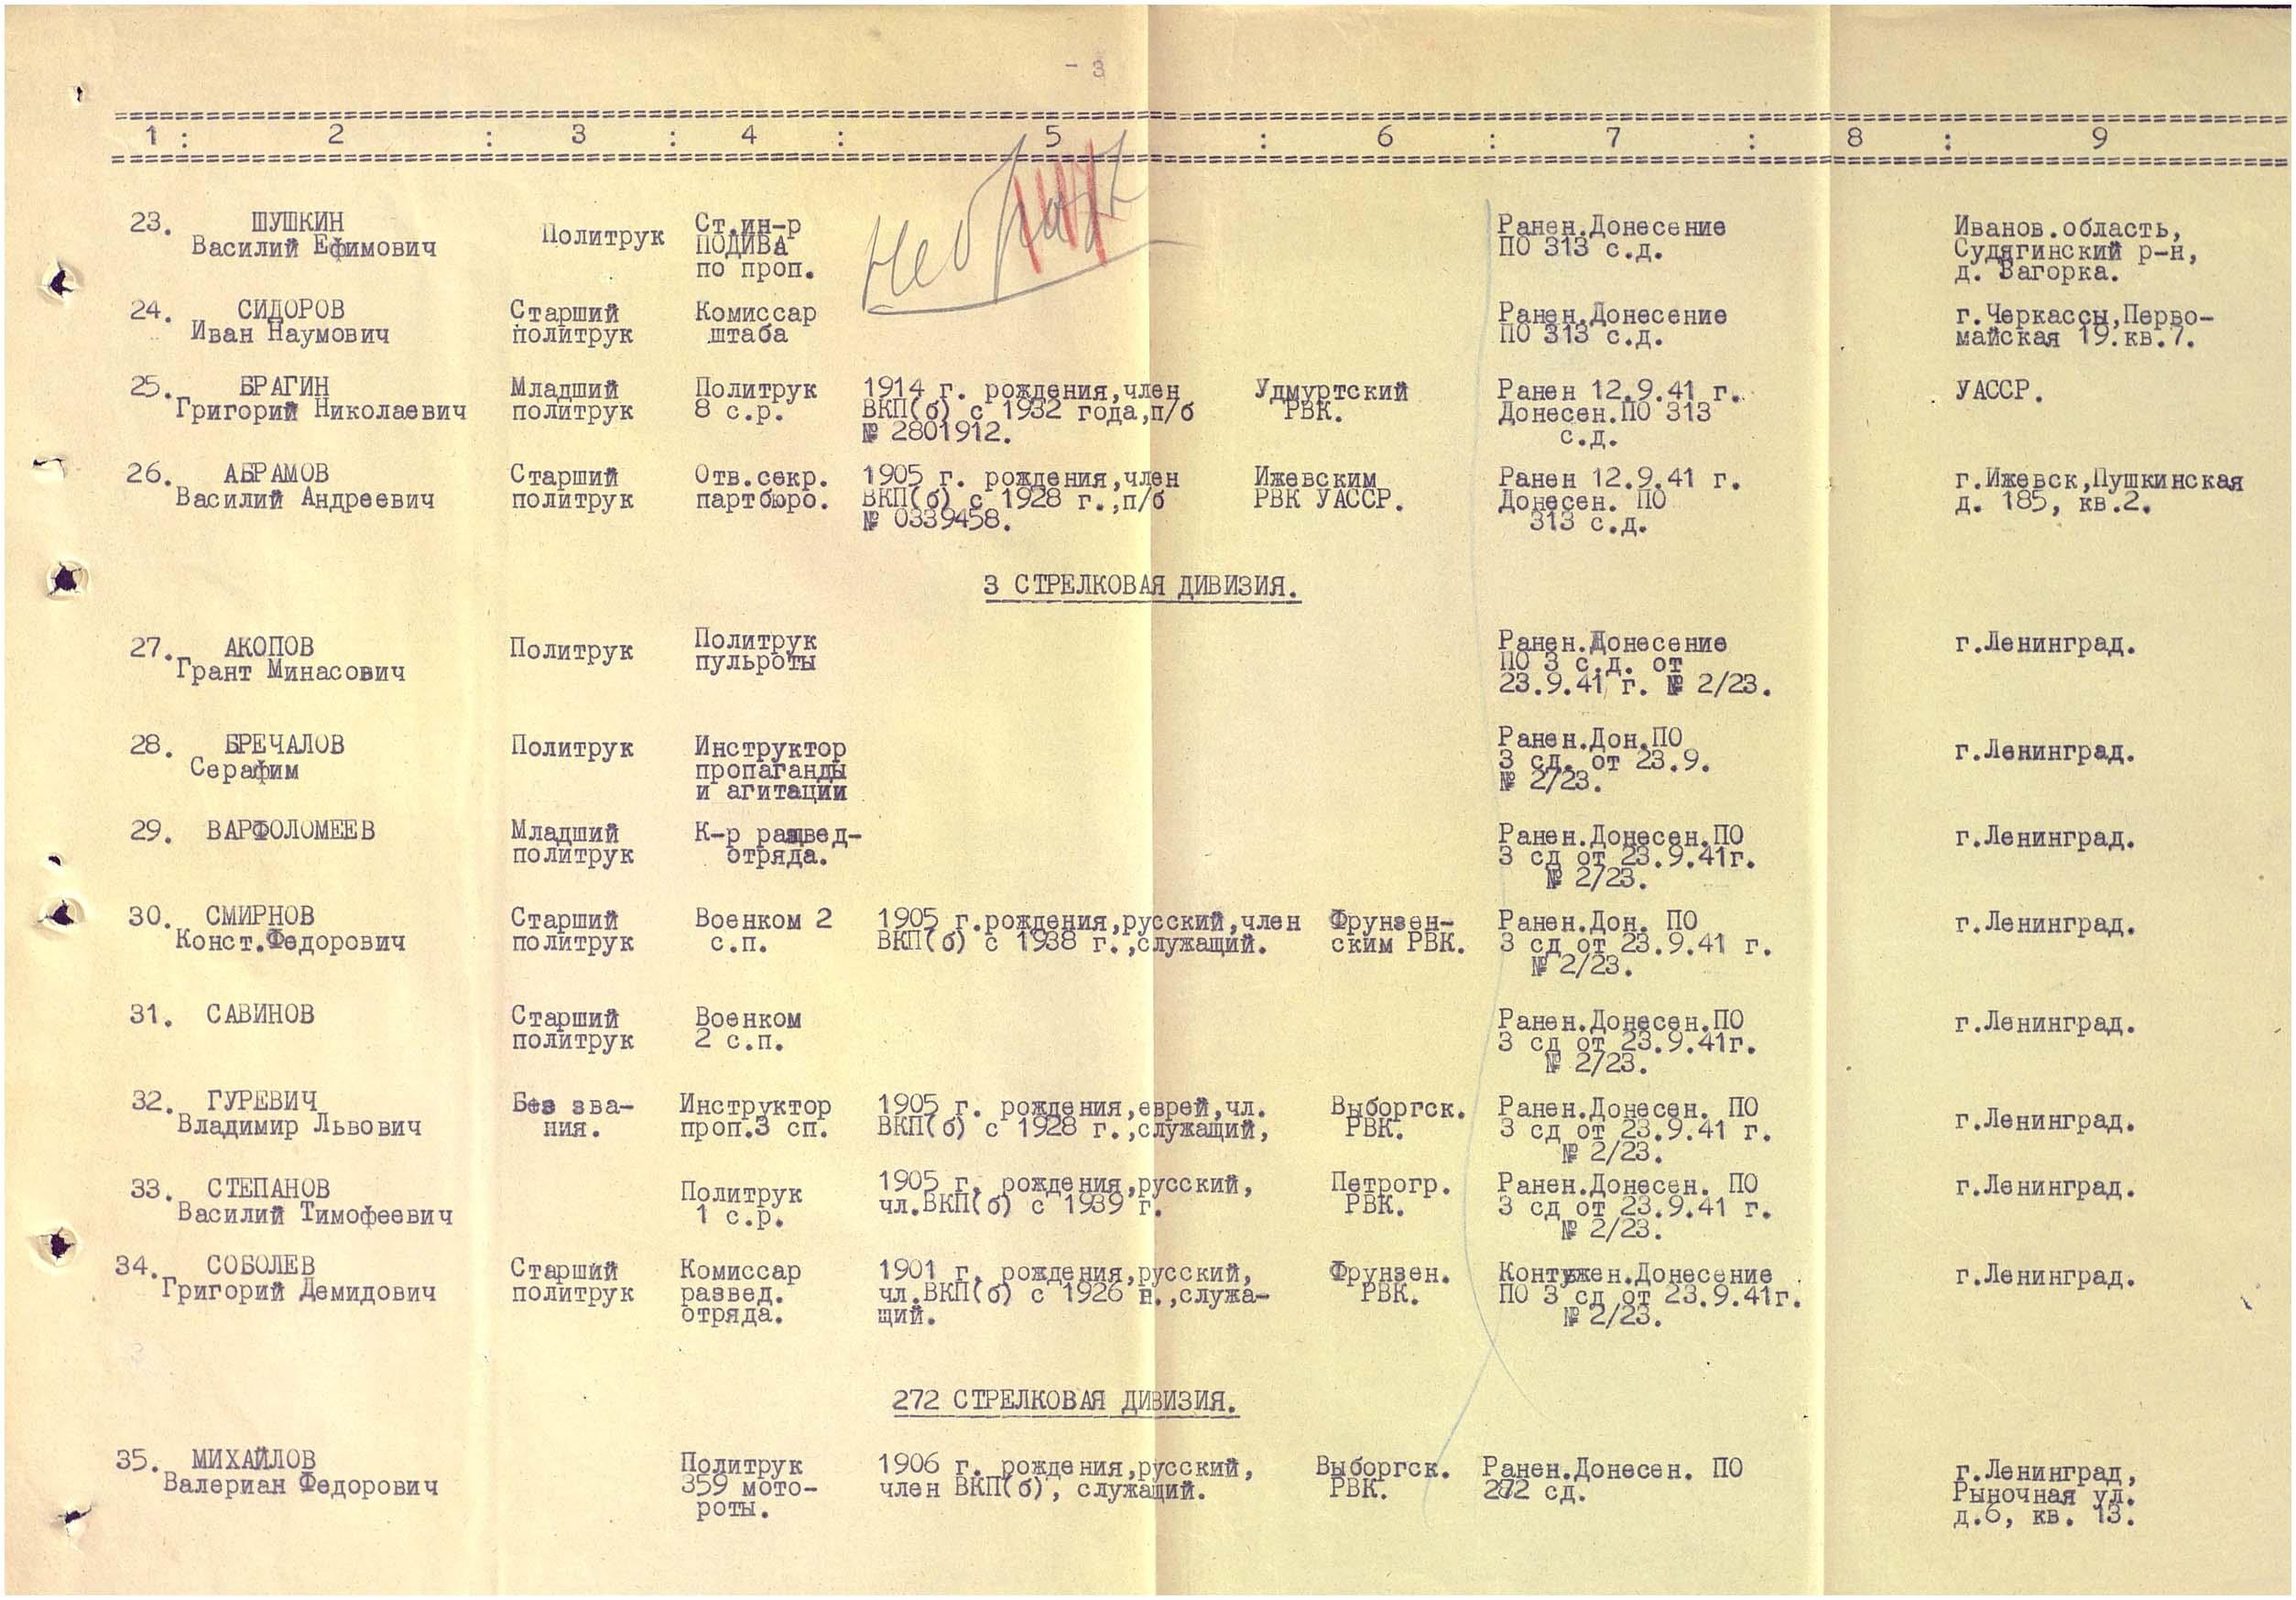 - 3
1 : 2 : 3 : 4 : 5 : 6 : 7 : 8 : 9
23. ШУШКИН
Василий Ефимович
Политрук
Ст.ин-р
ПОДИВА
по проп.
Ранен.Донесение
ПО 313 с.д.
Иванов.область,
Судягинский р-н,
д. Вагорка.
24. СИДОРОВ
Иван Наумович
Старший
политрук
Комиссар
штаба
Ранен.Донесение
ПО 313 с.д.
г.Черкассы,Перво-
майская 19.кв.7.
25. БРАГИН
Григорий Николаевич
Младший
политрук
Политрук
8 с.р.
1914 г. рождения,член
ВКП(б) с 1932 года,п/б
№ 2801912.
Удмуртский
РВК.
Ранен 12.9.41 г.
Донесен.ПО 313
с.д.
УАССР.
26. АБРАМОВ
Василий Андреевич
Старший
политрук
Отв.секр.
партбюро.
1905 г. рождения,член
ВКП(б) с 1928 г.,п/б
№ 0339458.
Ижевским
РВК УАССР.
Ранен 12.9.41 г.
Донесен. ПО
313 с.д.
г.Ижевск,Пушкинская
д. 185, кв.2.
3 СТРЕЛКОВАЯ ДИВИЗИЯ.
27. АКОПОВ
Грант Минасович
Политрук
Политрук
пульроты
Ранен.Донесение
ПО 3 с.д. от
23.9.41 г. № 2/23.
г.Ленинград.
28. БРЕЧАЛОВ
Серафим
Политрук
Инструктор
пропаганды
и агитации
Ранен.Дон.ПО
3 сд. от 23.9.
№ 2/23.
г.Ленинград.
29. ВАРФОЛОМЕЕВ
Младший
политрук
К-р развед-
отряда.
Ранен.Донесен.ПО
3 сд от 23.9.41г.
№ 2/23.
г.Ленинград.
30. СМИРНОВ
Конст.Федорович
Старший
политрук
Военком 2
с.п.
1905 г.рождения,русский,член
ВКП(б) с 1938 г.,служащий.
Фрунзен-
ским РВК.
Ранен.Дон. ПО
3 сд от 23.9.41 г.
№ 2/23.
г.Ленинград.
31. САВИНОВ
Старший
политрук
Военком
2 с.п.
Ранен.Донесен.ПО
3 сд от 23.9.41г.
№ 2/23.
г.Ленинград.
32. ГУРЕВИЧ
Владимир Львович
Без зва-
ния.
Инструктор
проп.3 сп.
1905 г. рождения,еврей,чл.
ВКП(б) с 1928 г.,служащий,
Выборгск.
РВК.
Ранен.Донесен. ПО
3 сд от 23.9.41 г.
№ 2/23.
г.Ленинград.
33. СТЕПАНОВ
Василий Тимофеевич
Политрук
1 с.р.
1905 г. рождения,русский,
чл.ВКП(б) с 1939 г.
Петрогр.
РВК.
Ранен.Донесен. ПО
3 сд от 23.9.41 г.
№ 2/23.
г.Ленинград.
34. СОБОЛЕВ
Григорий Демидович
Старший
политрук
Комиссар
развед.
отряда.
1901 г. рождения,русский,
чл.ВКП(б) с 1926 г.,служа-
щий.
Фрунзен.
РВК.
Контужен.Донесение
ПО 3 сд от 23.9.41г.
№ 2/23.
г.Ленинград.
272 СТРЕЛКОВАЯ ДИВИЗИЯ.
35. МИХАЙЛОВ
Валериан Федорович
Политрук
359 мото-
роты.
1906 г. рождения,русский,
член ВКП(б), служащий.
Выборгск.
РВК.
Ранен.Донесен. ПО
272 сд.
г.Ленинград,
Рыночная ул.
д.6, кв. 13.